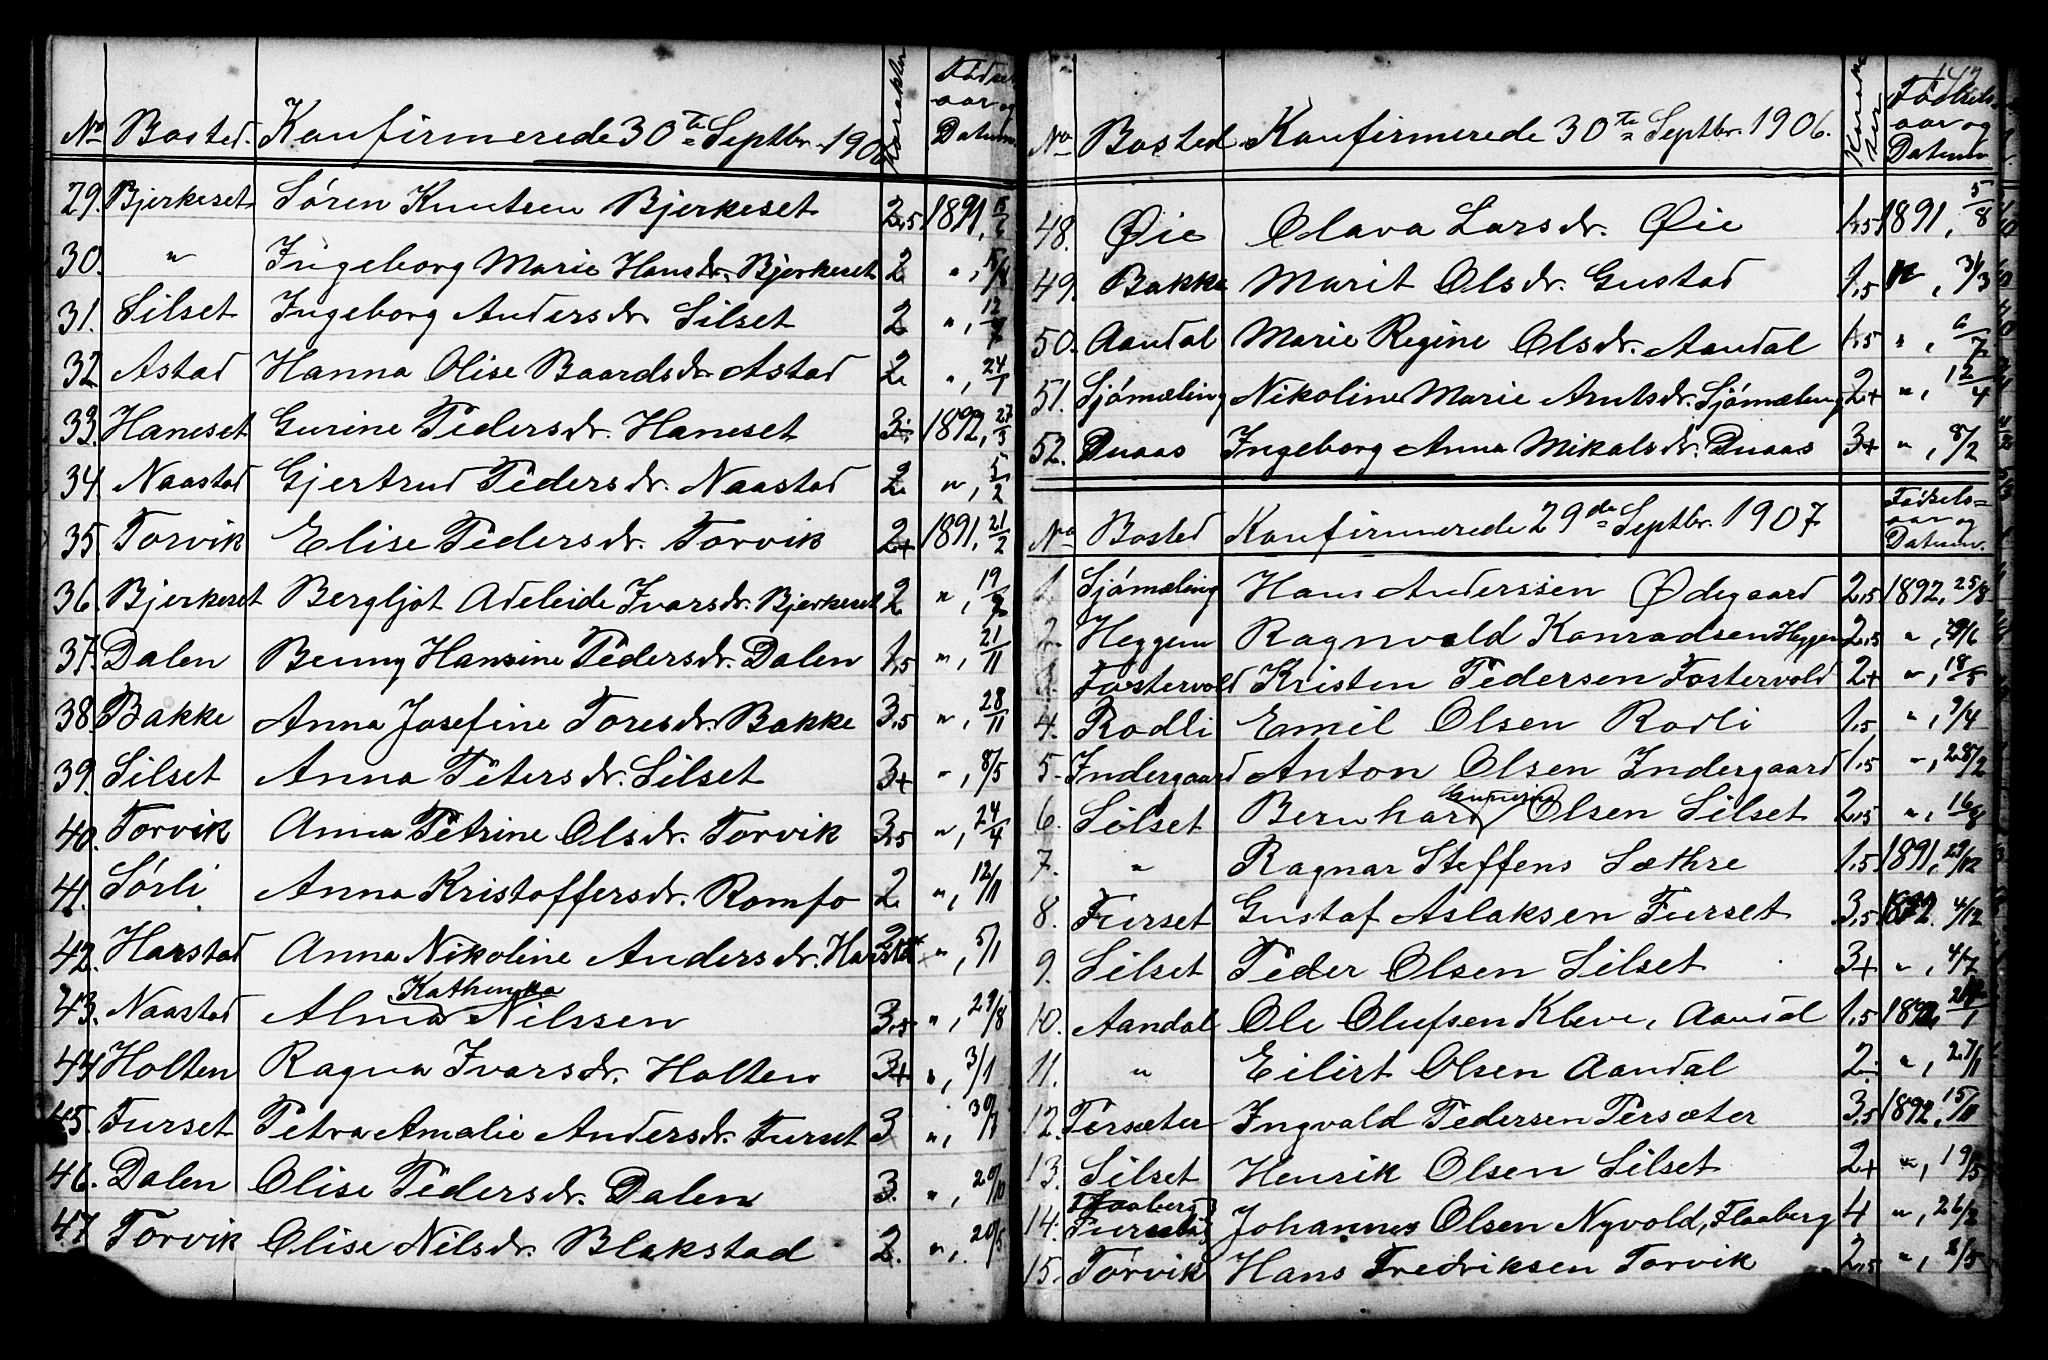 No Bosted. Konfirmerede 30te Septbr. 1906 Karakter Fødsels aar og Datum.
29. Bjerkeset Søren Knutsen Bjerkeset 2,5 1891, 15/6
30. " Ingeborg Marie Hansdr. Bjerkeset 2 ", 5/8
31. Silset Ingeborg Andersdr. Silset 2 ", 12/7
32. Astad Hanna Olise Baardsdr. Astad 2 ", 24/1
33. Haneset Gurine Pedersdr. Haneset 3 1892, 27/3
34. Naastad Gjertrud Pedersdr. Naastad 2 ", 5/2
35. Torvik Elise Pedersdr. Torvik 2+ 1891, 21/2
36. Bjerkeset Bergljot Adeleide Ivarsdr. Bjerkeset 2 ", 19/7
37. Dalen Benny Hansine Pedersdr. Dalen 1,5 ", 21/11
38. Bakke Anna Josefine Toresdr. Bakke 3,5 ", 28/11
39. Silset Anna Petersdr. Silset 3+ ", 8/5
40. Torvik Anna Petrine Olsdr. Torvik 3,5 ", 24/4
41. Sørli Anna Kristoffersdr. Romfo 2 ", 12/11
42. Harstad Anna Nikoline Andersdr. Harstad 2 ", 5/1
Kathinka
43. Naastad Alma Nilssen 3,5 ", 29/8
44 Holten Ragna Ivarsdr. Holten 3+ ", 3/1
45. Furset Petra Amalie Andersdr. Furset 3 ", 30/7
46. Dalen Olise Pedersdr. Dalen 3. ", 29/10
47 Torvik Olise Nilsdr. Blakstad 2. ", 20/5
142
No Bosted Konfirmerede 30te Septbr. 1906. Karakter Fødsels aar og Datum
48. Øie Olava Larsdr. Øie 1,5 1891, 5/8
49. Bakke Marit Olsdr. Gustad 1,5 ", 31/3
50. Aandal Marie Regine Olsdr. Aandal 1,5 ", 6/7
51. Sjømæling Nikoline Marie Arntsdr. Sjømæling 2+ ", 12/4
52. Duaas Ingeborg Anna Mikalsdr. Duaas 3+ ", 8/2
No Bosted Konfirmerede 29de Septbr. 1907 Fødsels- aar og Datum.
1. Sjømæling Hans Anderssen Ødegaard 2,5 1892, 25/8
2. Heggem Ragnvald Konradsen Heggem 2,5 ", 29/6
3. Fostervold Kristen Pedersen Fostervold 2+ ", 18/5
4. Rødli Emil Olsen Rødli 1,5 ", 9/4
5. Indergaard Anton Olsen Indergaard 1,5 ", 28/2
6. Silset Bernhard Olsen Silset 2,5 ", 16/8
7. " Ragnar Steffens Sæthre 1,5 1891, 29/12
8. Furset Gustaf Aslaksen Furset 3,5 1892. 4/12
9. Silset Peder Olsen Silset 3+ ", 4/7
10. Aandal Ole Olufsen Kleve, Aandal 1,5
11. " Eilert Olsen Aandal 2 ", 27/1
12. Persæter Ingvald Pedersen Persæter 3,5 1892, 15/11
13. Silset Henrik Olsen Silset 2+ ", 19/5
Flaaberg
14. Johannes Olsen Nyvold, Flaaberg 4 ", 26/2
15. Torvik Hans Fredriksen Torvik 2,5 ", 2/5